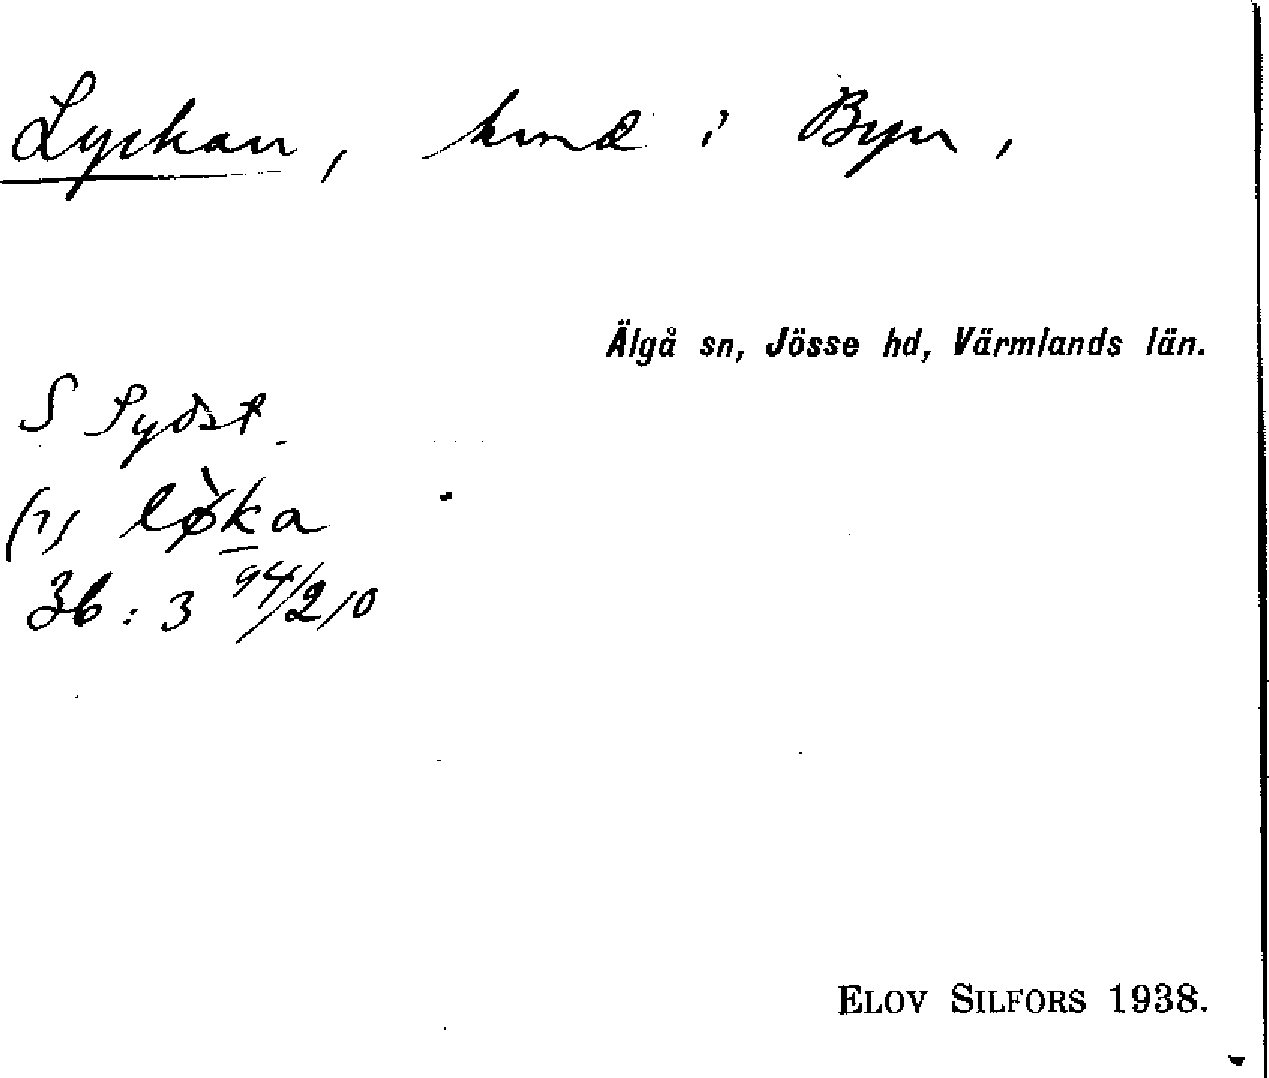 Lyckan, hmd i Byn,
Älgå sn, Jösse hd, Värmlands län.
S Sydst.
(1) lø̀ka
36:3 94/210
ELOV SILFORS 1938.